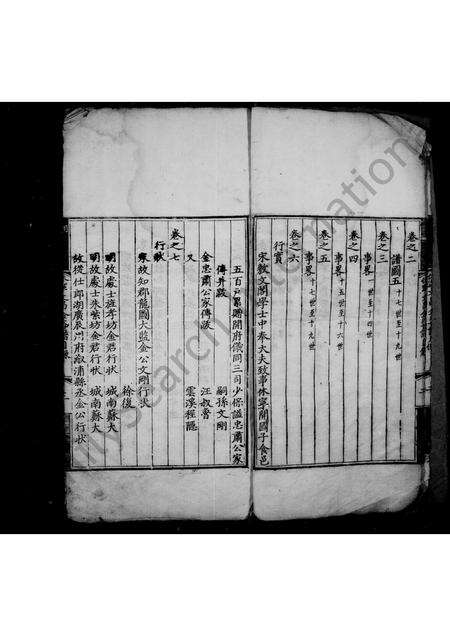 卷之二
譜圖五 十七世至十九世
卷之三
事畧 一世至十四世
卷之四
事畧 十五世至十六世
卷之五
事畧 十七世至十九世
卷之六
行實
宋敷文閣學士中奉大夫致事休寧開國子食邑
五百戶累贈開府儀同三司少保謚忠肅公家
傳并跋 嗣孫文剛
金忠肅公家傳後 汪叔詹
又 雲溪程隱
卷之七
行狀
宋故知郡龍圖大監金公文剛行狀
徐復
明故處士旌孝坊金君行狀 城南蘇大
明故處士朱紫坊金君行狀 城南蘇大
故從仕郎湖廣辰州府漵浦縣丞金公行狀
mysearch mation